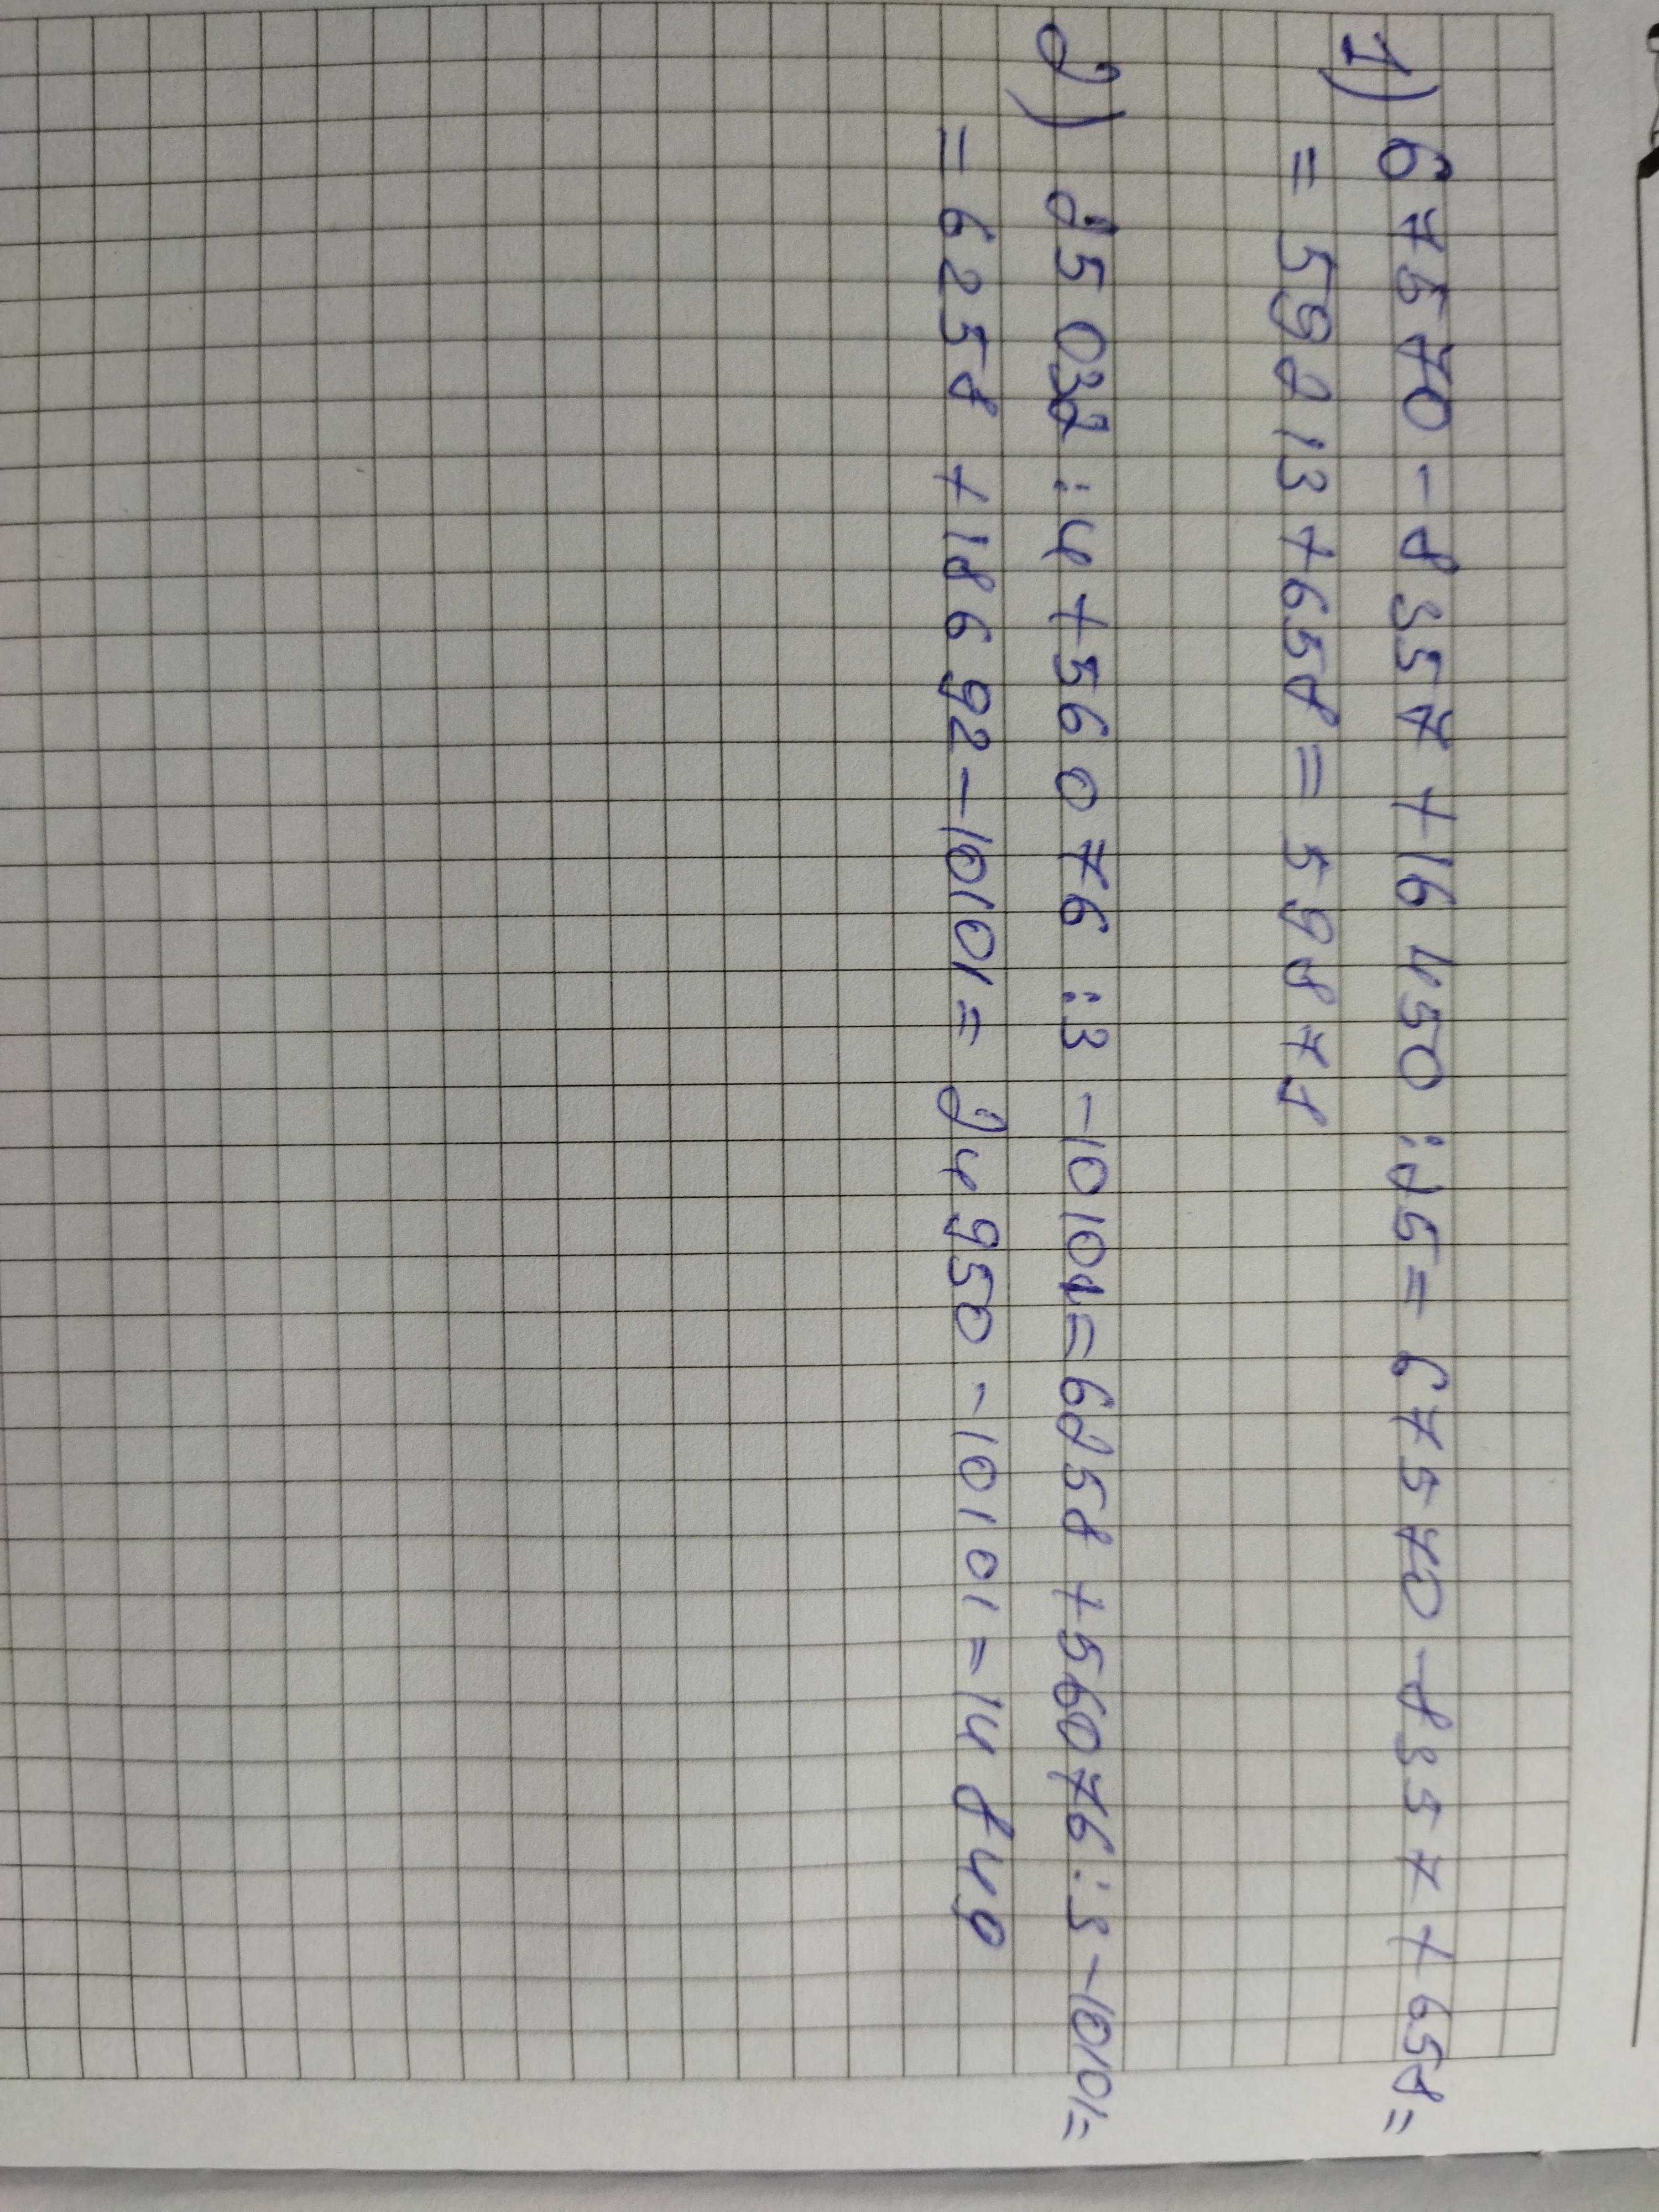 1) 67570 - 8357 + 16450 : 25 = 67570 - 8357 + 658 =
= 59213 + 658 = 59878
2) 25 032 : 4 + 56076 : 3 - 10101 = 6258 + 56076 : 3 - 10101 =
= 6258 + 18692 - 10101 = 24950 - 10101 = 14849